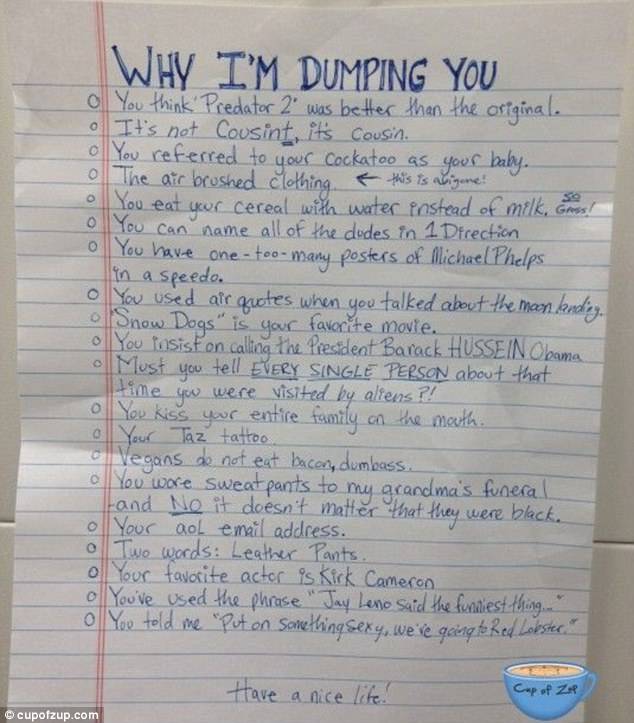 WHY I'M DUMPING YOU
o You think 'Predator 2' was better than the original.
o It's not Cousint, it's cousin.
o You referred to your cockatoo as your baby.
o The air brushed clothing. ← this is a bigone!
o You eat your cereal with water instead of milk. SO Gross!
o You can name all of the dudes in 1 Direction
o You have one-too-many posters of Michael Phelps
in a speedo.
o You used air quotes when you talked about the moon landing.
o "Snow Dogs" is your favorite movie.
o You insist on calling the President Barack HUSSEIN Obama
o Must you tell EVERY SINGLE PERSON about that
time you were visited by aliens?!
o You kiss your entire family on the mouth.
o Your Taz tattoo
o Vegans do not eat bacon, dumbass.
o You wore sweatpants to my grandma's funeral
-and NO it doesn't matter that they were black.
o Your aol email address.
o Two words: Leather Pants.
o Your favorite actor is Kirk Cameron
o You've used the phrase "Jay Leno said the funniest thing..."
o You told me "Put on something sexy, we're going to Red Lobster."
Have a nice life!
Cup of Zup
© cupofzup.com